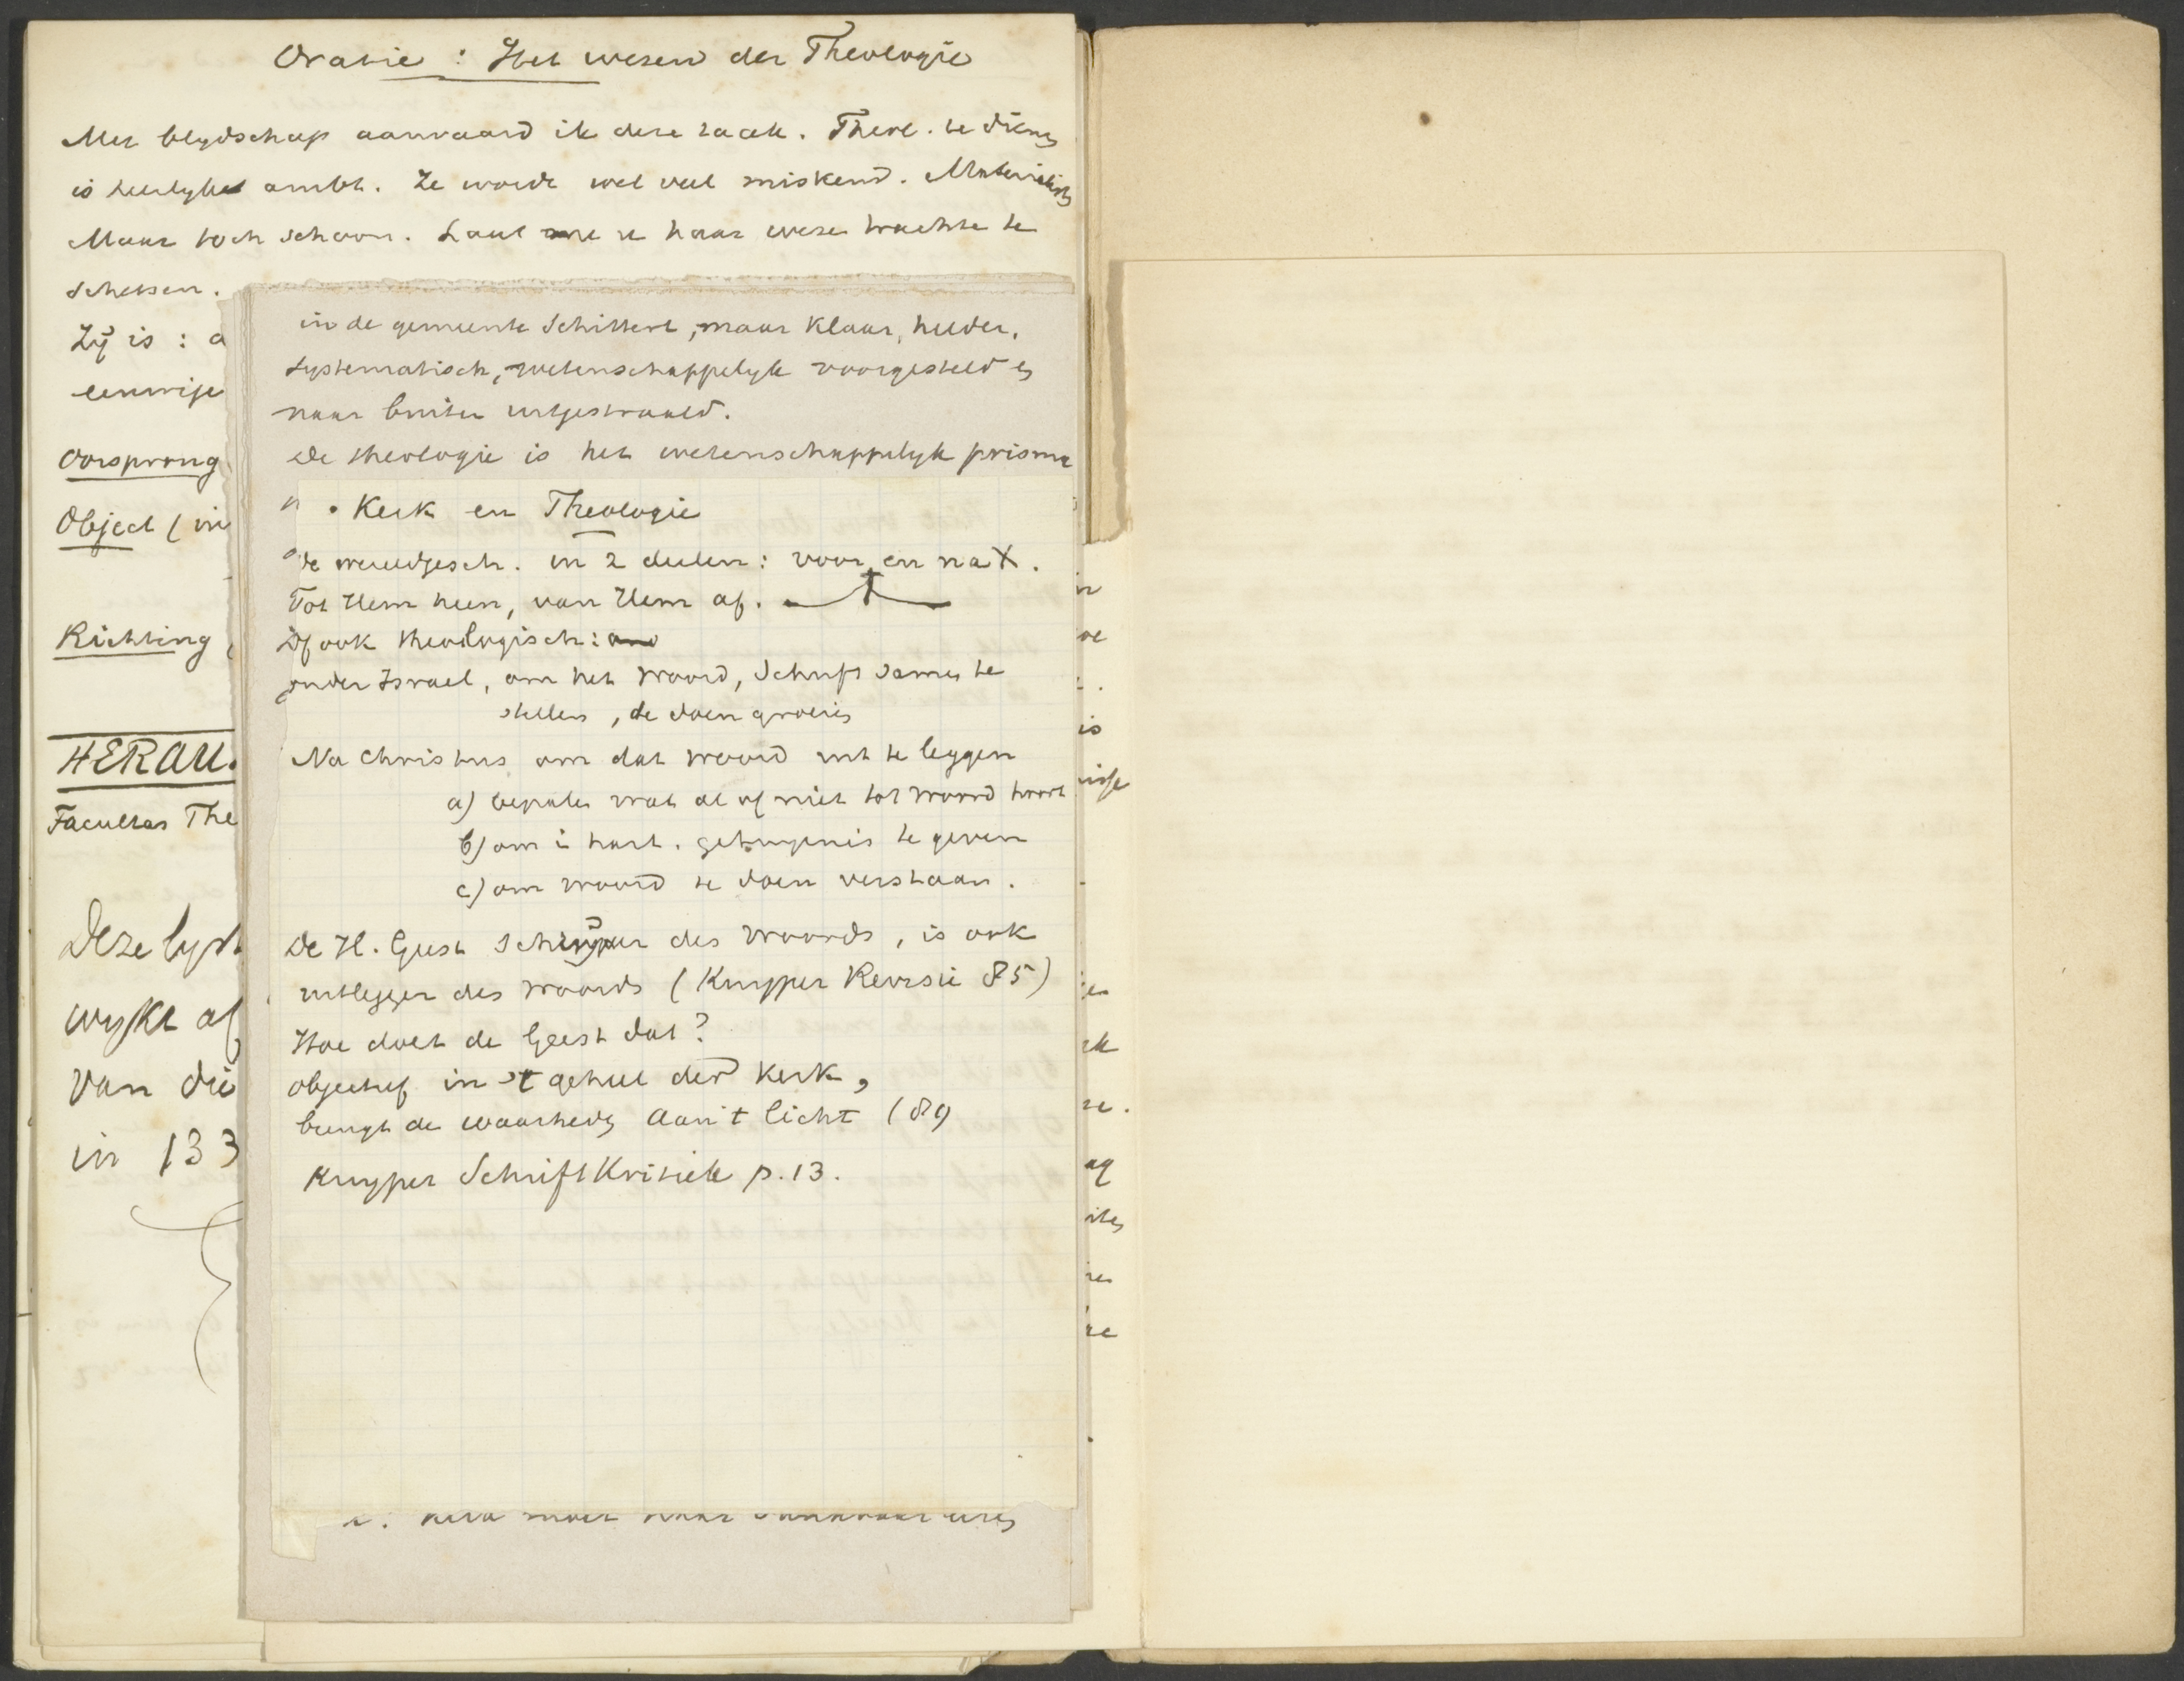 Oratie : Het wezen der Theologie
Met blydschap aanvaard ik deze taak. Theol. te dienen
is heerlyke ambt. Ze wordt wel veel miskend. Materialisten
Maar toch schoon. Laat me u haar wezen trachten te
schetsen.
Zÿ is : a
eenwije
Oorsprong
Object (in
Richting
HERAU.
Facultas The
Deze lyst
wykt af
van die
in 133
in de gemeente schittert, maar klaar, helder,
systematisch, wetenschappelyk voorgesteld en
naar buiten uitgestraald.
De theologie is het wetenschappelyk prisma
Kerk en Theologie
De wereldgesch. in 2 deelen: voor en na X.
Tot Hem heen, van Hem af.
Zoo ook theologisch:
onder Israel, om het Woord, Schrift samen te
stellen, te doen groeien
Na Christus om dat woord uit te leggen
a) bepalen wat al of niet tot woord hoort
b) om i hart. getuigenis te geven
c) om woord te doen verstaan.
De H. Geest Schrÿver des Woords, is ook
uitlegger des woords (Kuyper Revisie 85)
Hoe doet de Geest dat?
objectief in 't geheel der Kerk,
brengt de waarheid aan 't licht (89
Kuyper SchriftKritiek p. 13.
in
oe
is
isse
en
rk
re.
ag
iten
ren
re